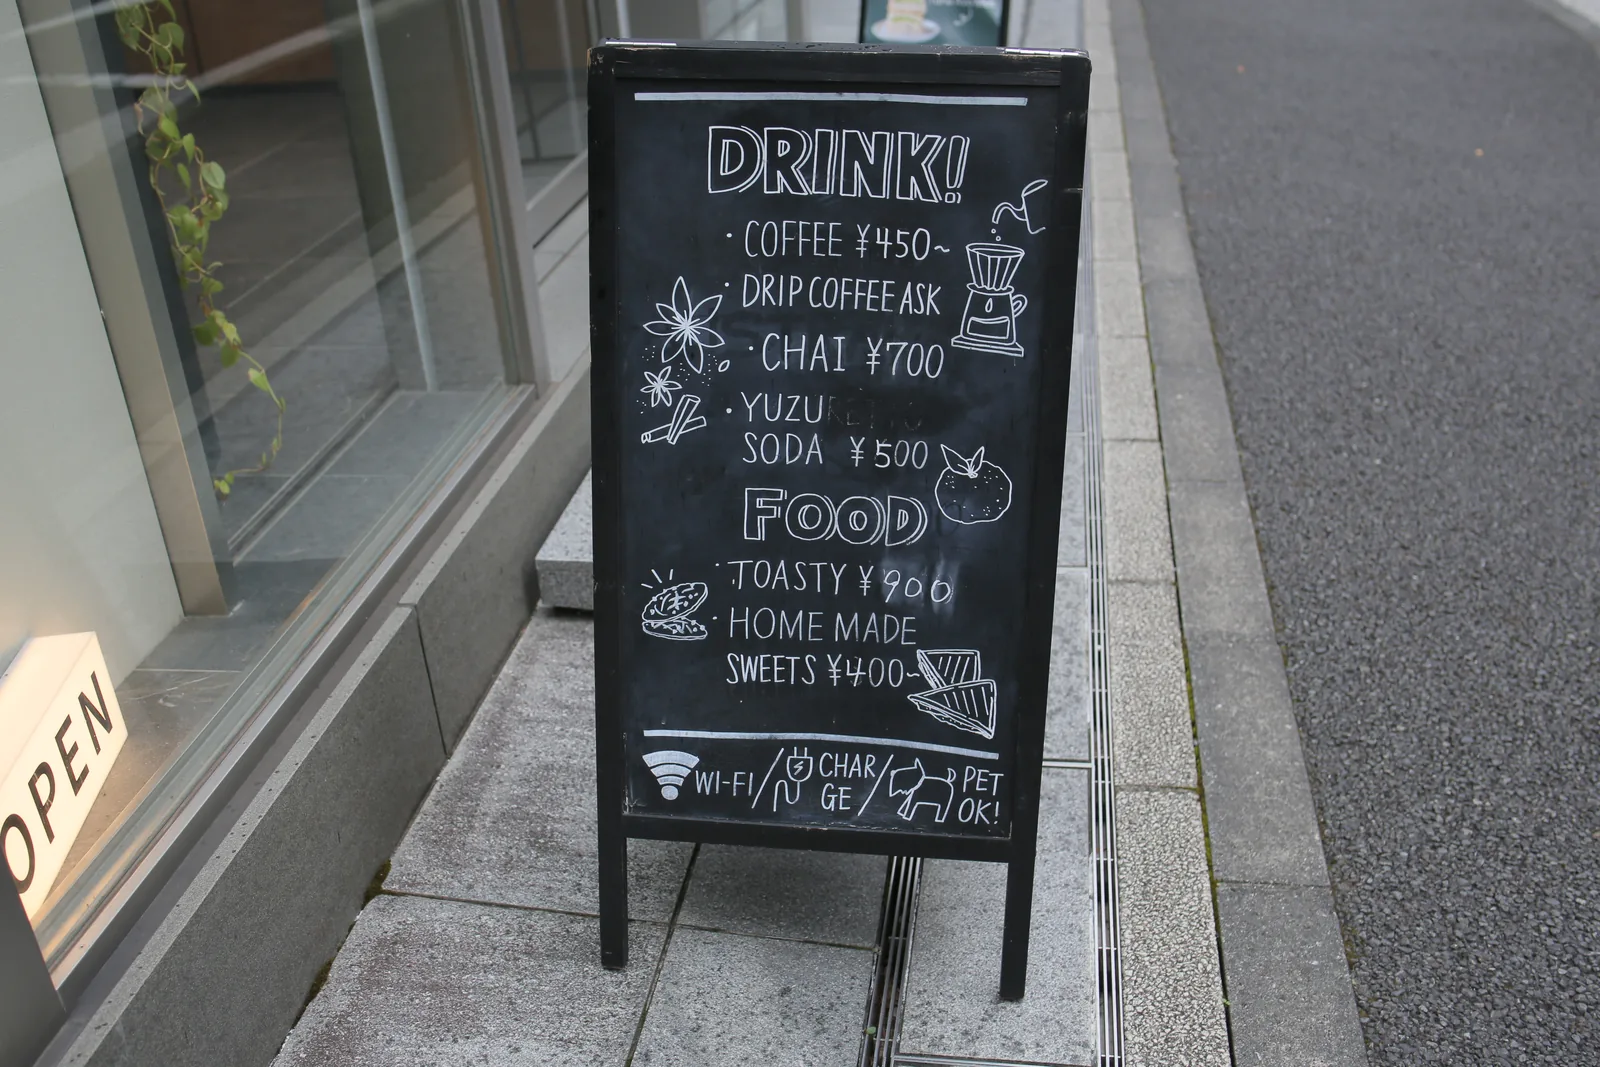 DRINK!
・COFFEE ¥450~
・DRIP COFFEE ASK
・CHAI ¥700
・YUZU
SODA ¥500
FOOD
・TOASTY ¥900
・HOME MADE
SWEETS ¥400~
WI-FI / CHAR / PET
GE OK!
OPEN